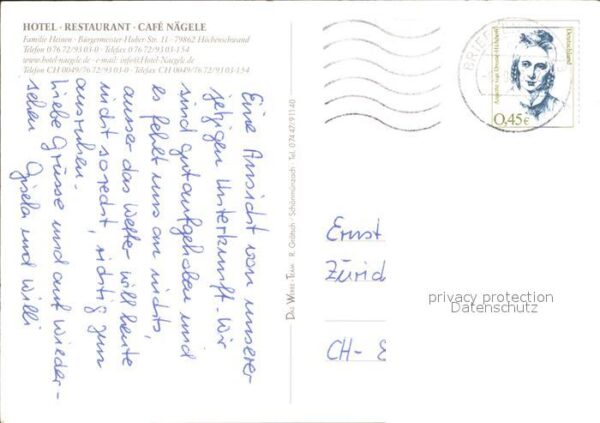 HOTEL · RESTAURANT · CAFÉ NÄGELE
Familie Heinen · Bürgermeister-Huber-Str. 11 · 79862 Höchenschwand
Telefon 07672/9303-0 · Telefax 07672/9303-154
www.hotel-naegele.de · e-mail: info@Hotel-Naegele.de
Telefon CH 0049/7672/9303-0 · Telefax CH 0049/7672/9303-154
Eine Ansicht von unserer
jetzigen Unterkunft. Wir
sind gut aufgehoben und
es fehlt uns an nichts,
ausser das Wetter will heute
nicht so recht, richtig zum
ausruhen.
Liebe Grüsse und auf Wieder-
sehen Gisela und Willi
DAS WERBE-TEAM R. Grätsch · Schönmünzach · Tel. 07447/91140
BRIEF
Deutschland
0,45€
Ernst
Züric
CH-
privacy protection
Datenschutz